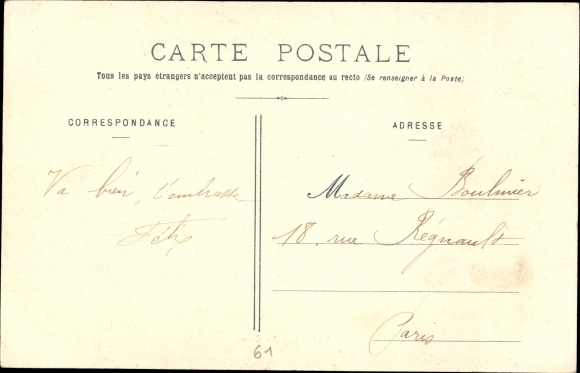 CARTE POSTALE
Tous les pays étrangers n'acceptent pas la correspondance au recto (Se renseigner à la Poste)
CORRESPONDANCE
ADRESSE
Va bien, t'embrasse
Félix
Madame Boulinier
18, rue Régnault
Paris
61